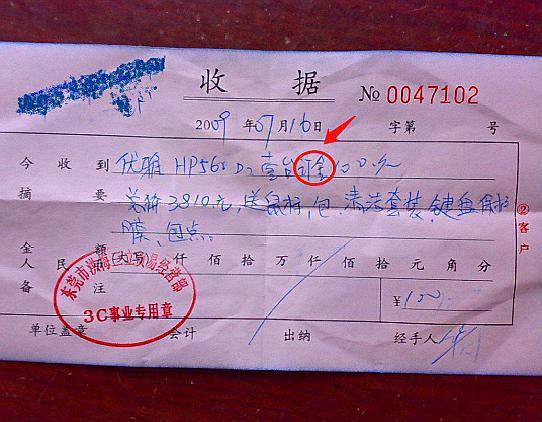 收据
№ 0047102
2009年07月16日 字第 号
今收到 优雅 HP560 D2 壹台订金100元
摘要 总价3810元,送鼠标,包,清洁套装,键盘
膜,包点。
金额
人民币(大写) 仟佰拾万仟佰拾元角分
备注 ¥100.-
东莞市 经营部
3C事业专用章
单位盖章 会计 出纳 经手人
②客户